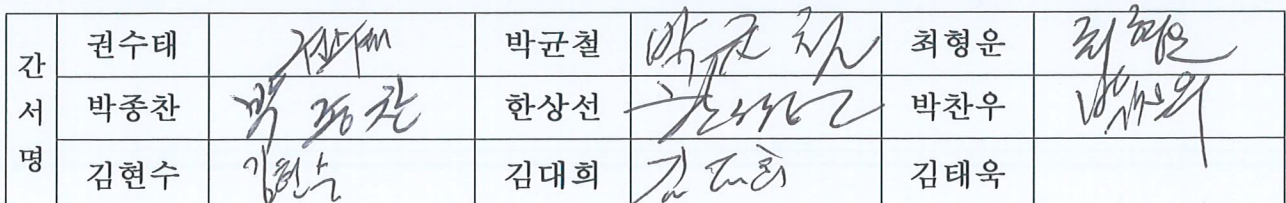 간서명 권수태 권수태 박균철 박균철 최형운 최형운
박종찬 박종찬 한상선 한상선 박찬우 박찬우
김현수 김현수 김대희 김대희 김태욱